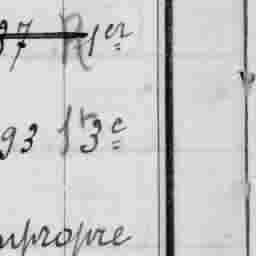 97 R 1er
93 13e
mpropre